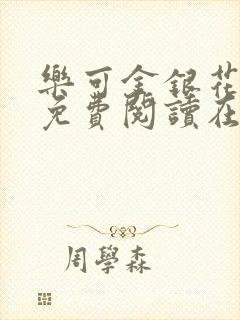 樂可金銀花
免費閱讀在
周學森